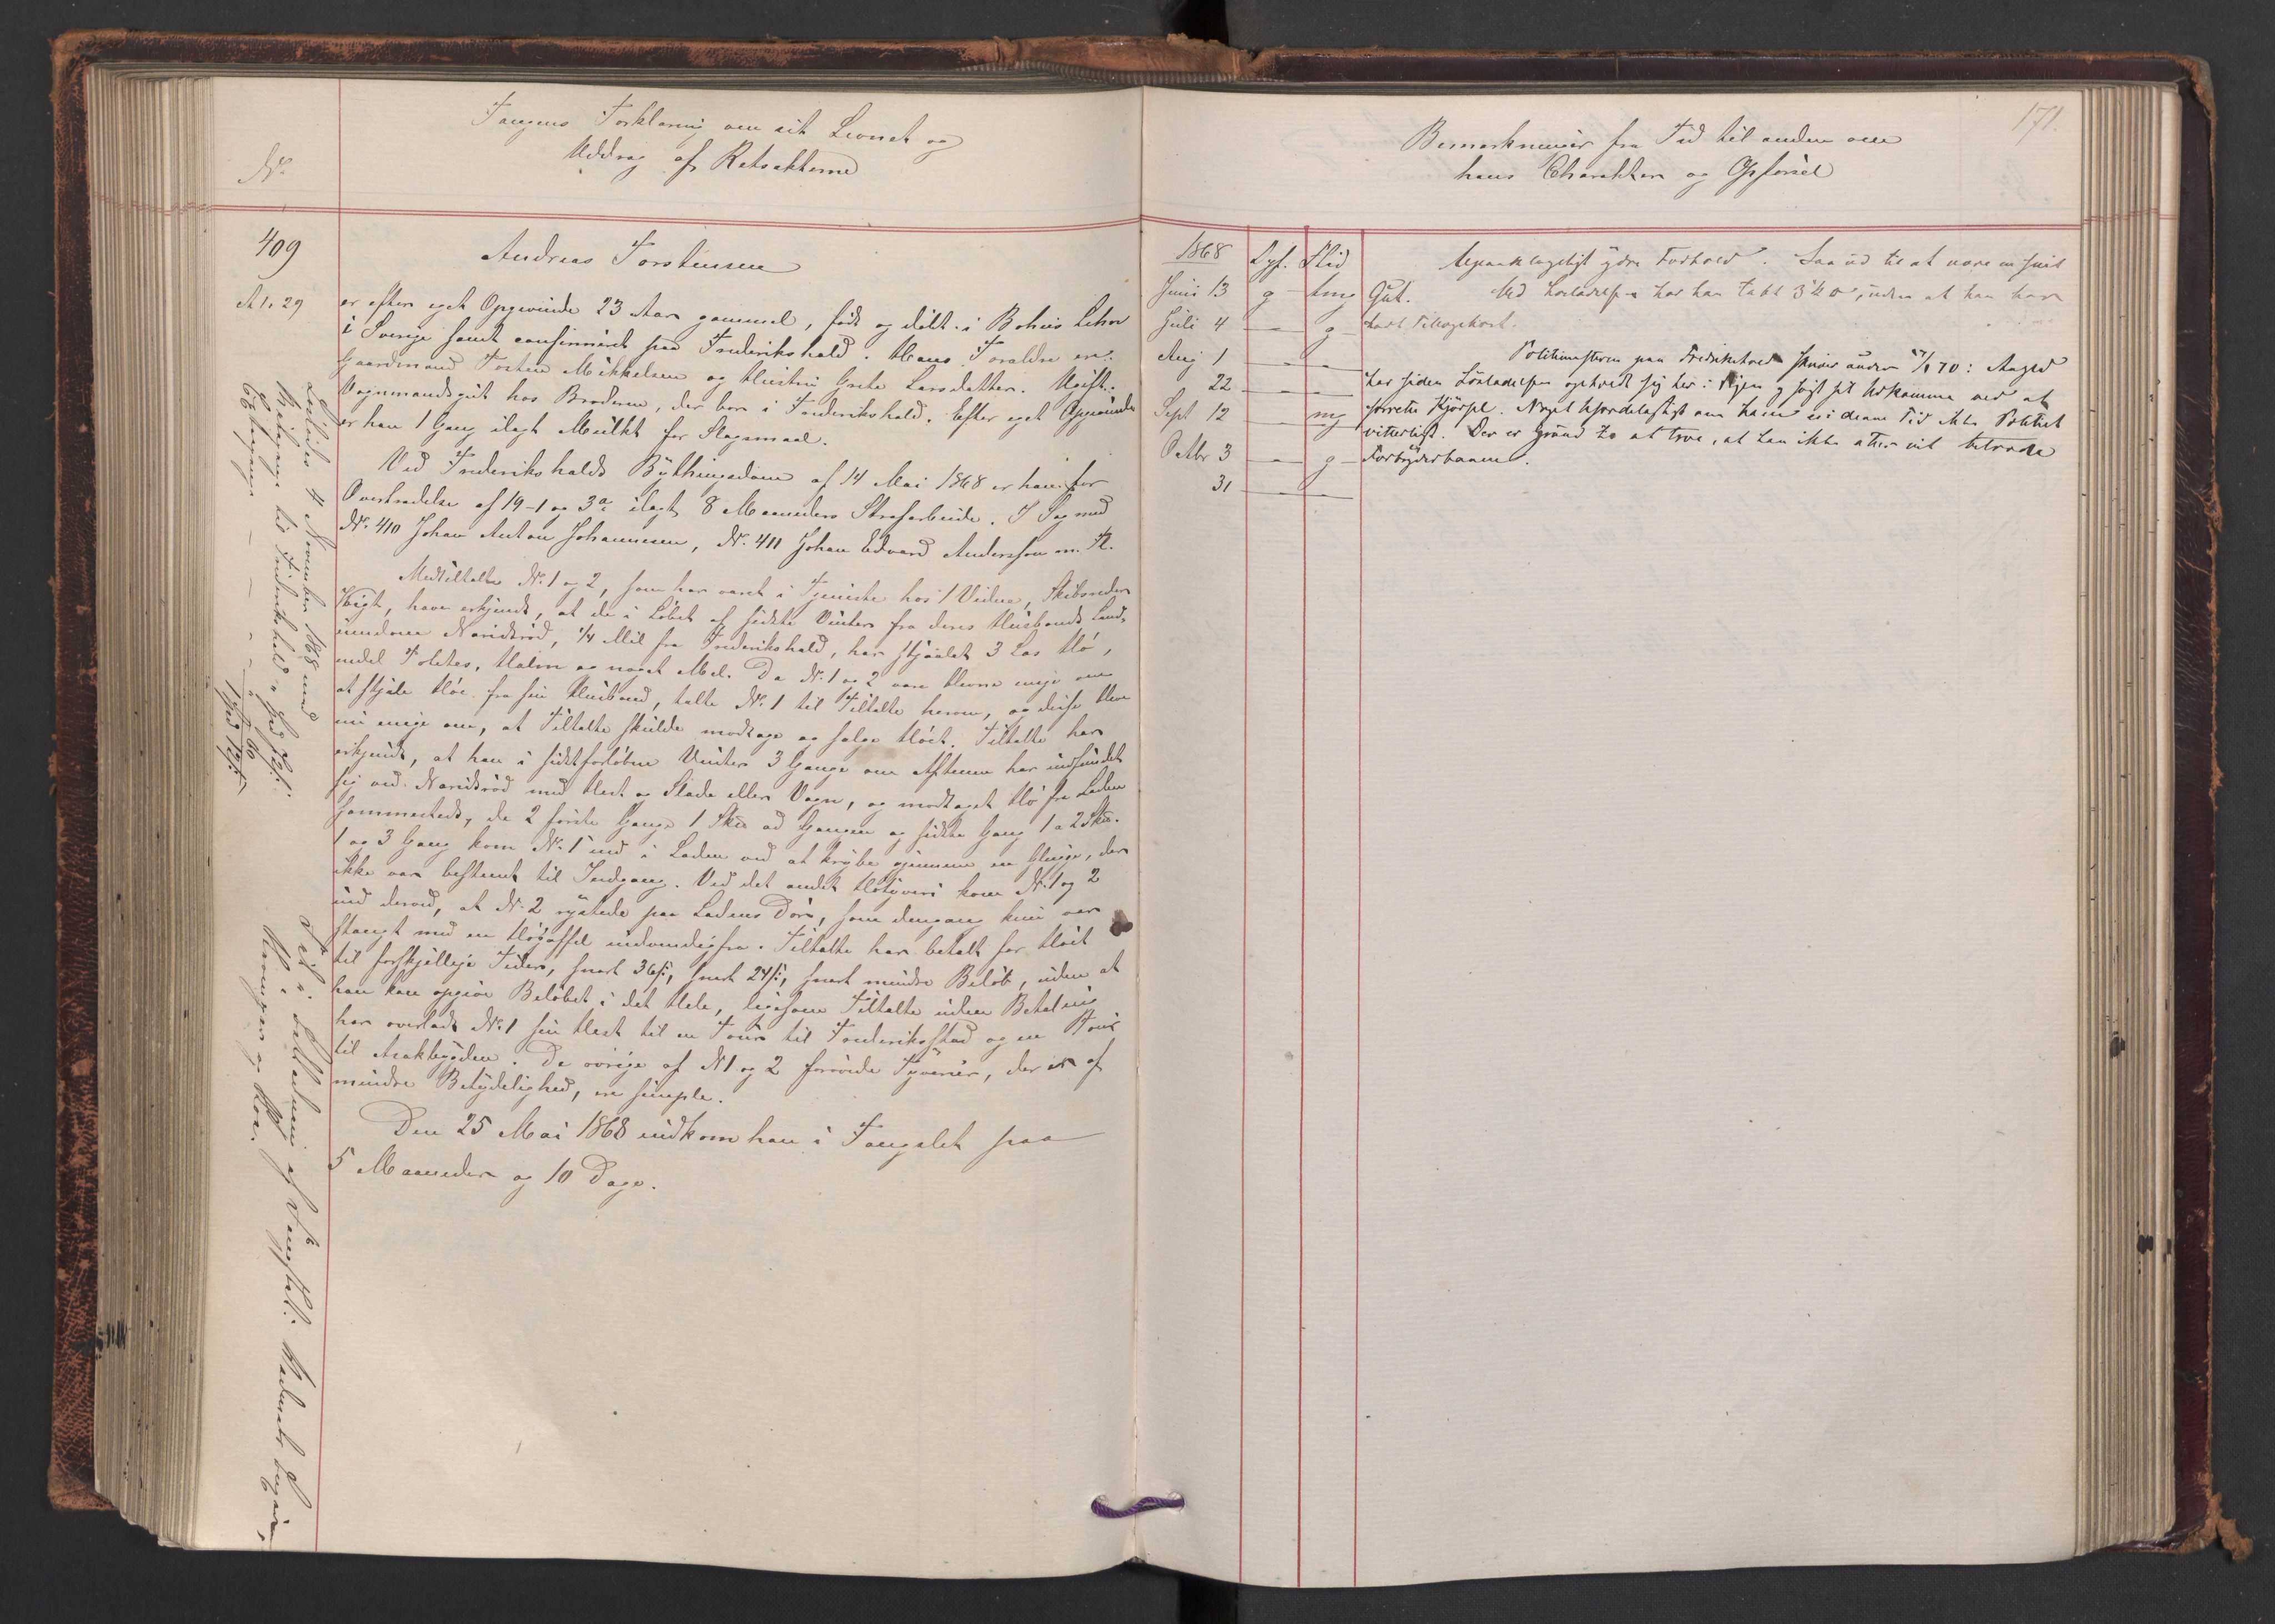 Fangens Forklaring om sit Levnet og
Uddrag af Retsakterne
No.
409
A 1. 29
Andreas Torstensen
er efter eget Opgivende 23 Aar gammel, født og døbt i Bohus Lehn
i Sverige samt confirmeret paa Frederikshald. Hans Forældre ere:
Gaardmand Torsten Mikkelsen og Hustru Grete Larsdatter. Ugift.
Vognmandsgut hos Broderen, der bor i Frederikshald. Efter eget Opgivende
er han 1 Gang ilagt Mulkt for Slagsmaal.
Ved Frederikshalds Bythingsdom af 14 Mai 1868 er han for
Overtrædelse af 19-1 og 3a ilagt 8 Maaneders Strafarbeide. I Sag med
No. 410 Johan Anton Johannesen, No. 411 Johan Edvard Andersson m. Fl.
Medtiltalte No. 1 og 2, som har været i Tjeneste hos 1 Vidne, Skibsreder
Wigt, have erkjendt, at de i Løbet af sidste Vinter fra deres Husbonds Land-
eiendom, 1/4 Mil fra Frederikshald, har stjaalet 3 Læs Hø,
endel Poteter, Halm og noget Mel. Da No. 1 og 2 vare blevne enige om
at stjæle Høe fra sin Husbond, talte No. 1 til Tiltalte herom, og disse bleve
nu enige om, at Tiltalte skulde modtage og sælge Høet. Tiltalte har
erkjendt, at han i sidstforløbne Vinter 3 Gange om Aftenen har indfundet
sig ved med Hest og Slæde eller Vogn, og modtaget Hø fra Laden
sammesteds, de 2 første Gange 1 ad Gangen og sidste Gang 1 a 2
1 og 3 Gang kom No. 1 ind i Laden ved at krybe gjennem en Gluge, der
ikke var bestemt til Indgang. Ved det andet Høtyveri kom No. 1 og 2
ind derved, at No. 2 rystede paa Ladens Dør, som dengang kun var
stængt med en Høgaffel indvendigfra. Tiltalte har betalt for Høet
til forskjellige Tider, snart 36 ß, snart 24 ß, snart mindre Beløb, uden at
han kan opgive Beløbet i det Hele, ligesom Tiltalte uden Betaling
har overladt No. 1 sin Hest til en Tour til Frederiksstad og en Tour
til Asakbygden. De øvrige af No 1 og 2 forøvede Tyverier, der er af
mindre Betydelighed, ere simple.
Den 25 Mai 1868 indkom han i Fangslet paa
5 Maaneder og 10 Dage.
Løslades 4 November 1868 med
til Frederikshald
171.
Bemærkninger fra Tid til anden om
hans Charakter og Opførsel
1868 Opf. Flid
Juni 13 g tmg
Juli 4 — g
Aug 1 — —
22 — —
Sept 12 — mg
Octbr 3 — g
31 — —
Upaaklageligt ydre Forhold. Saa ud til at være en snil
Gut. Ved Løsladelsen har han tabt 3 ℔, uden at han har
havt Tillægskost.
Politimesteren paa Fredrikshald skriver under 17/1 70: Angjld
har siden Løsladelsen opholdt sig her i Byen og søgt sit Udkomme ved at
forrette Kjørsel. Noget ufordelagtigt om ham er i denne Tid ikke Politiet
vitterligt. Der er Grund til at tro, at han ikke atter vil betræde
Forbryderbanen.